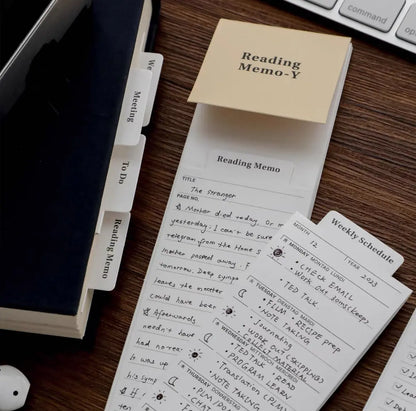 command
option
Reading
Memo-Y
We
Meeting
To Do
Reading Memo
Reading Memo
TITLE
The Stranger
PAGE NO.
Mother died today. Or
yesterday; I can't be sure
telegram from the Home s
Mother passed away. F
tomorrow. Deep sympa
leaves the matter
could have been
Afterwards
needn't have
had no rea
it was up
his symp
Weekly Schedule
MONTH 12 YEAR 2023
MONDAY
CHECK EMAIL
Work out
TED TALK
TUESDAY
FILM
NOTE TAKING
Recipe prep
WEDNESDAY
Journaling
Work out (skipping)
MATERIAL
TED TALK
PROGRAM
READ
NOTE TAKING
Translation
THURSDAY
FILM
NOTE TAKING
CHAT